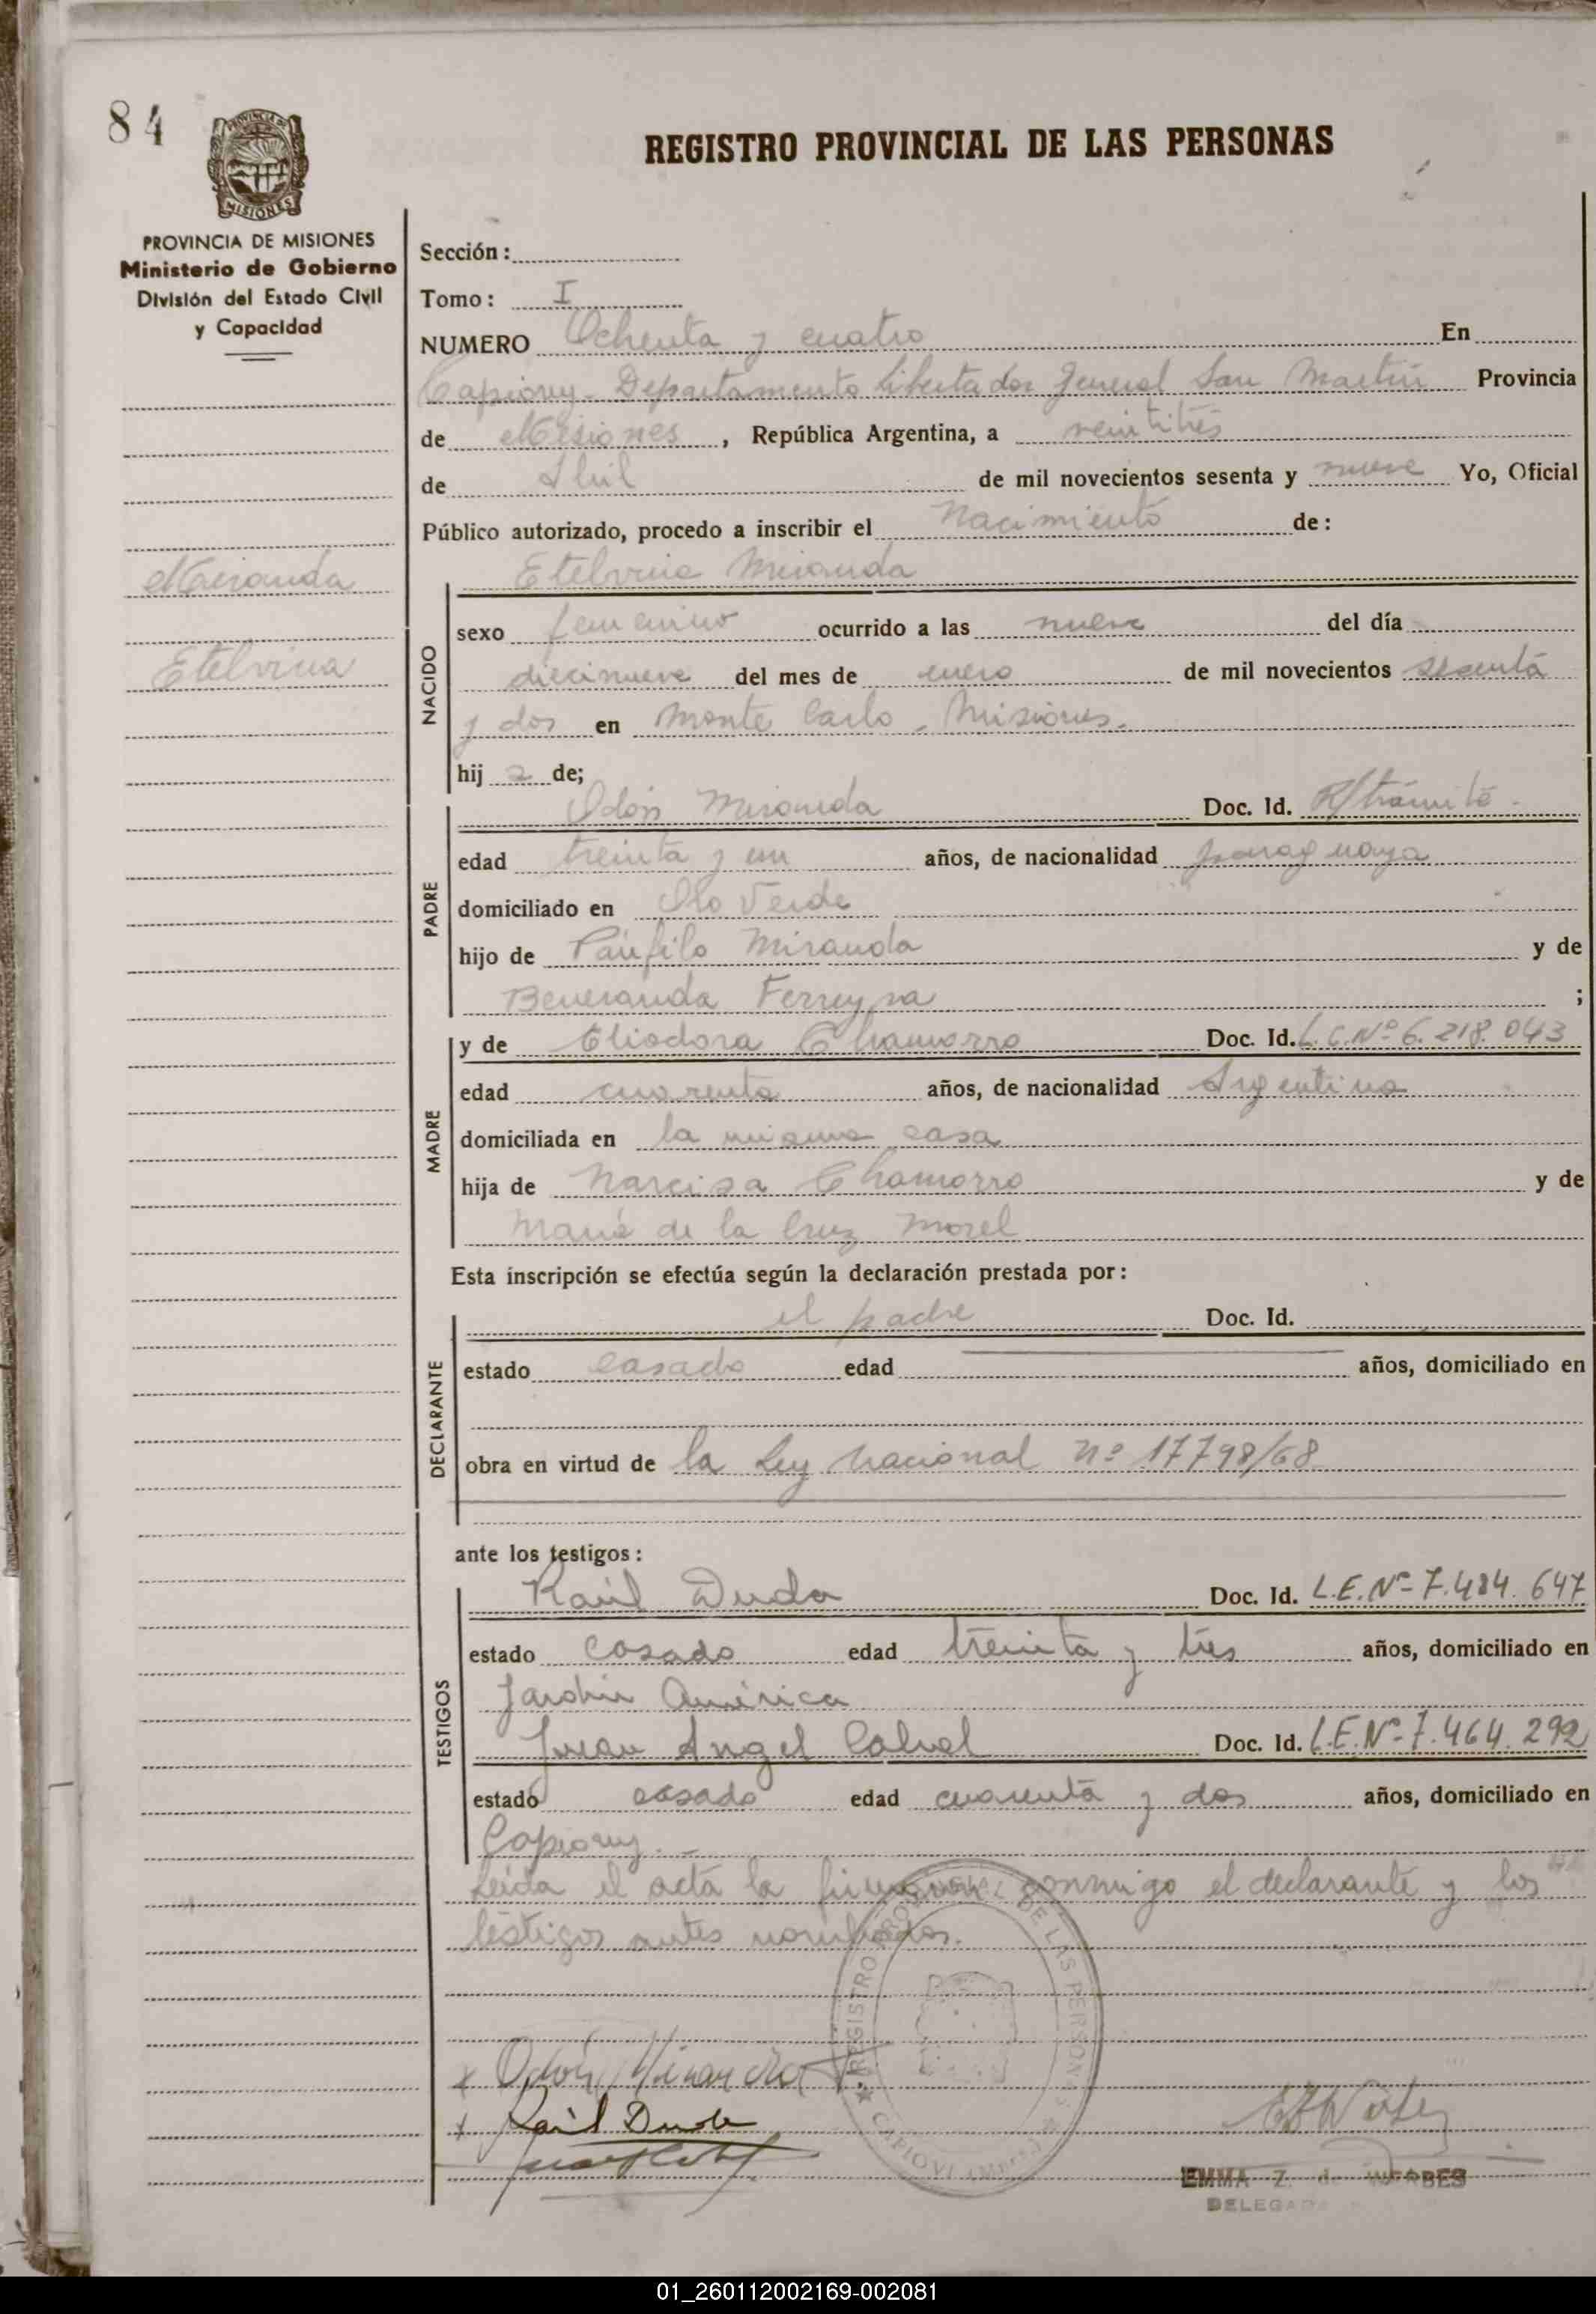 84
PROVINCIA DE
MISIONES
REGISTRO PROVINCIAL DE LAS PERSONAS
PROVINCIA DE MISIONES
Ministerio de Gobierno
División del Estado Civil
y Capacidad
Miranda
Etelvina
Sección:
Tomo: I
NUMERO Ochenta y cuatro En
Capiovy - Departamento Libertador General San Martín Provincia
de Misiones, República Argentina, a veintitrés
de Abril de mil novecientos sesenta y nueve Yo, Oficial
Público autorizado, procedo a inscribir el Nacimiento de:
Etelvina Miranda
NACIDO
sexo femenino ocurrido a las nueve del día
diecinueve del mes de enero de mil novecientos sesenta
y dos en Monte Carlo - Misiones.
hij a de;
PADRE
Odón Miranda Doc. Id. R/trámite.
edad treinta y un años, de nacionalidad paraguaya
domiciliado en Oro Verde
hijo de Pánfilo Miranda y de
Beneranda Ferreyra ;
MADRE
y de Eliodora Chamorro Doc. Id. L.C.Nº 6.218.043
edad cuarenta años, de nacionalidad Argentina
domiciliada en la misma casa
hija de Narcisa Chamorro y de
María de la Cruz Morel
Esta inscripción se efectúa según la declaración prestada por:
DECLARANTE
el padre Doc. Id.
estado casado edad años, domiciliado en
obra en virtud de la Ley Nacional Nº 17798/68
ante los testigos:
TESTIGOS
Raúl Duda Doc. Id. L.E.Nº 7.484.647
estado casado edad treinta y tres años, domiciliado en
Jardín América
Juan Angel Cabral Doc. Id. L.E.Nº 7.464.292
estado casado edad cuarenta y dos años, domiciliado en
Capiovy. -
Leída el acta la firman conmigo el declarante y los
testigos antes nombrados.
REGISTRO PROVINCIAL DE LAS PERSONAS
CAPIOVI (Mnes.)
x Odón Miranda
x Raúl Duda
EMMA Z. de WERBES
DELEGADA
01_260112002169-002081